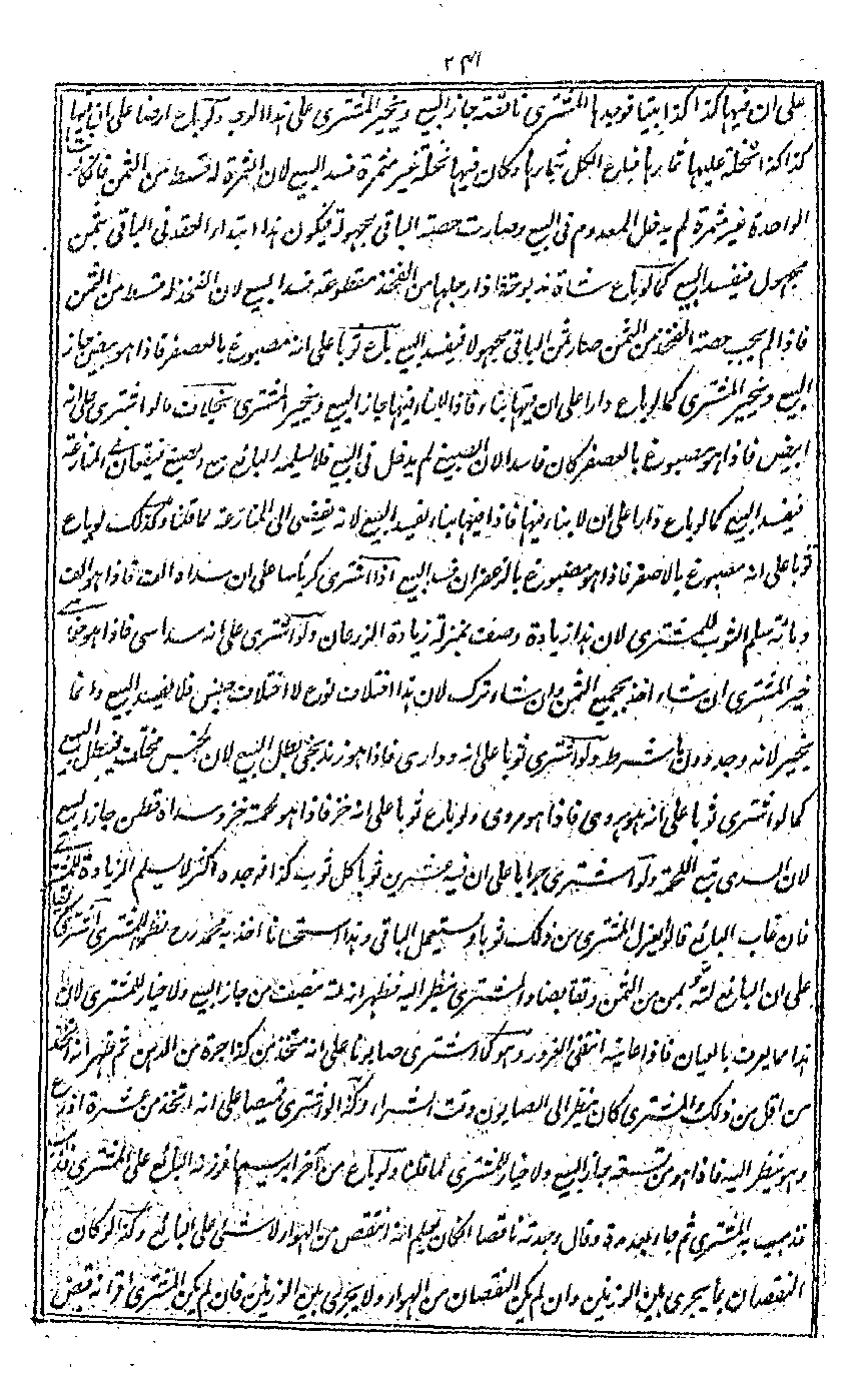 على ان فيها كذا كذا بيتا فوجدها المشترى ناقصة جاز البيع ويخير المشترى على هذا الوجه ولو باع ارضا على ان فيها
كذا كذا نخلة عليها ثمارها فباع الكل بثمارها وكان فيها نخلة غير مثمرة فسد البيع لان الثمرة له قسط من الثمن فاذا كانت
الواحدة غير مثمرة لم يدخل المعدوم فى البيع وصارت حصة الباقى مجهولة فيكون هذا ابتداء العقد فى الباقى بثمن
مجهول فيفسد البيع كما لو باع شاة مذبوحة فاذا رجلها من الفخذ مقطوعة فسد البيع لان الفخذ له قسط من الثمن
فاذا لم يجب حصة الفخذ من الثمن صار ثمن الباقى مجهولا فيفسد البيع باع ثوبا على انه مصبوغ بالعصفر فاذا هو ابيض جاز
البيع ويخير المشترى كما لو باع دارا على ان فيها بناء فاذا لا بناء فيها جاز البيع ويخير المشترى بخلاف ما لو اشترى على انه
ابيض فاذا هو مصبوغ بالعصفر كان فاسدا لان الصبغ لم يدخل فى البيع فلا يسلمه البائع مع الصبغ فيقعان فى المنازعة
فيفسد البيع كما لو باع دارا على ان لا بناء فيها فاذا فيها بناء يفسد البيع لانه يفضى الى المنازعة لما قلنا وكذلك لو باع
ثوبا على انه مصبوغ بالاصفر فاذا هو مصبوغ بالزعفران فسد البيع اذا اشترى كرباسا على ان سداه الف فاذا هو الف
ومائة سلم الثوب للمشترى لان هذا زيادة وصف بمنزلة زيادة الزرعان ولو اشترى على انه سداسى فاذا هو خماسى
خير المشترى ان شاء اخذ بجميع الثمن وان شاء ترك لان هذا اختلاف نوع لا اختلاف جنس فلا يفسد البيع وانما
يخير لانه وجد دون ما شرط ولو اشترى ثوبا على انه ودارى فاذا هو زندنجى بطل البيع لان الجنس مختلف فيبطل البيع
كما لو اشترى ثوبا على انه هروى فاذا هو مروى ولو باع ثوبا على انه خز فاذا هو لحمته خز وسداه قطن جاز البيع
لان السدى تبع اللحمة ولو اشترى جرابا على ان فيه عشرين ثوبا كل ثوب كذا فوجده اكثر لا يسلم الزيادة للمشترى
فان غاب البائع قالوا يعزل المشترى من ذلك ثوبا ويستعمل الباقى وهذا استحسان اخذ به محمد رح نظرا للمشترى اشترى
على ان البائع لته بمن من الثمن وتقابضا والمشترى ينظر اليه فظهر انه لته بنصف من جاز البيع ولا خيار للمشترى لان
هذا مما يعرف بالعيان فاذا عاينه انتفى الغرور وهو كما لو اشترى صابونا على انه متخذ من كذا جرة من الدهن ثم ظهر انه اتخذ
من اقل من ذلك والمشترى كان ينظر الى الصابون وقت الشراء وكذا لو اشترى قميصا على انه اتخذ من عشرة اذرع
وهو ينظر اليه فاذا هو من تسعة جاز البيع ولا خيار للمشترى لما قلنا ولو باع من آخر ابريسما فوزنه البائع على المشترى
فذهب به المشترى ثم جاء بعد مدة وقال وجدته ناقصا ان كان يعلم انه انتقص من الهواء لا شئ على البائع وكذا لو كان
النقصان مما يجرى بين الوزنين وان لم يكن النقصان من الهواء ولا يجرى بين الوزنين فان لم يكن المشترى اقر انه قبض